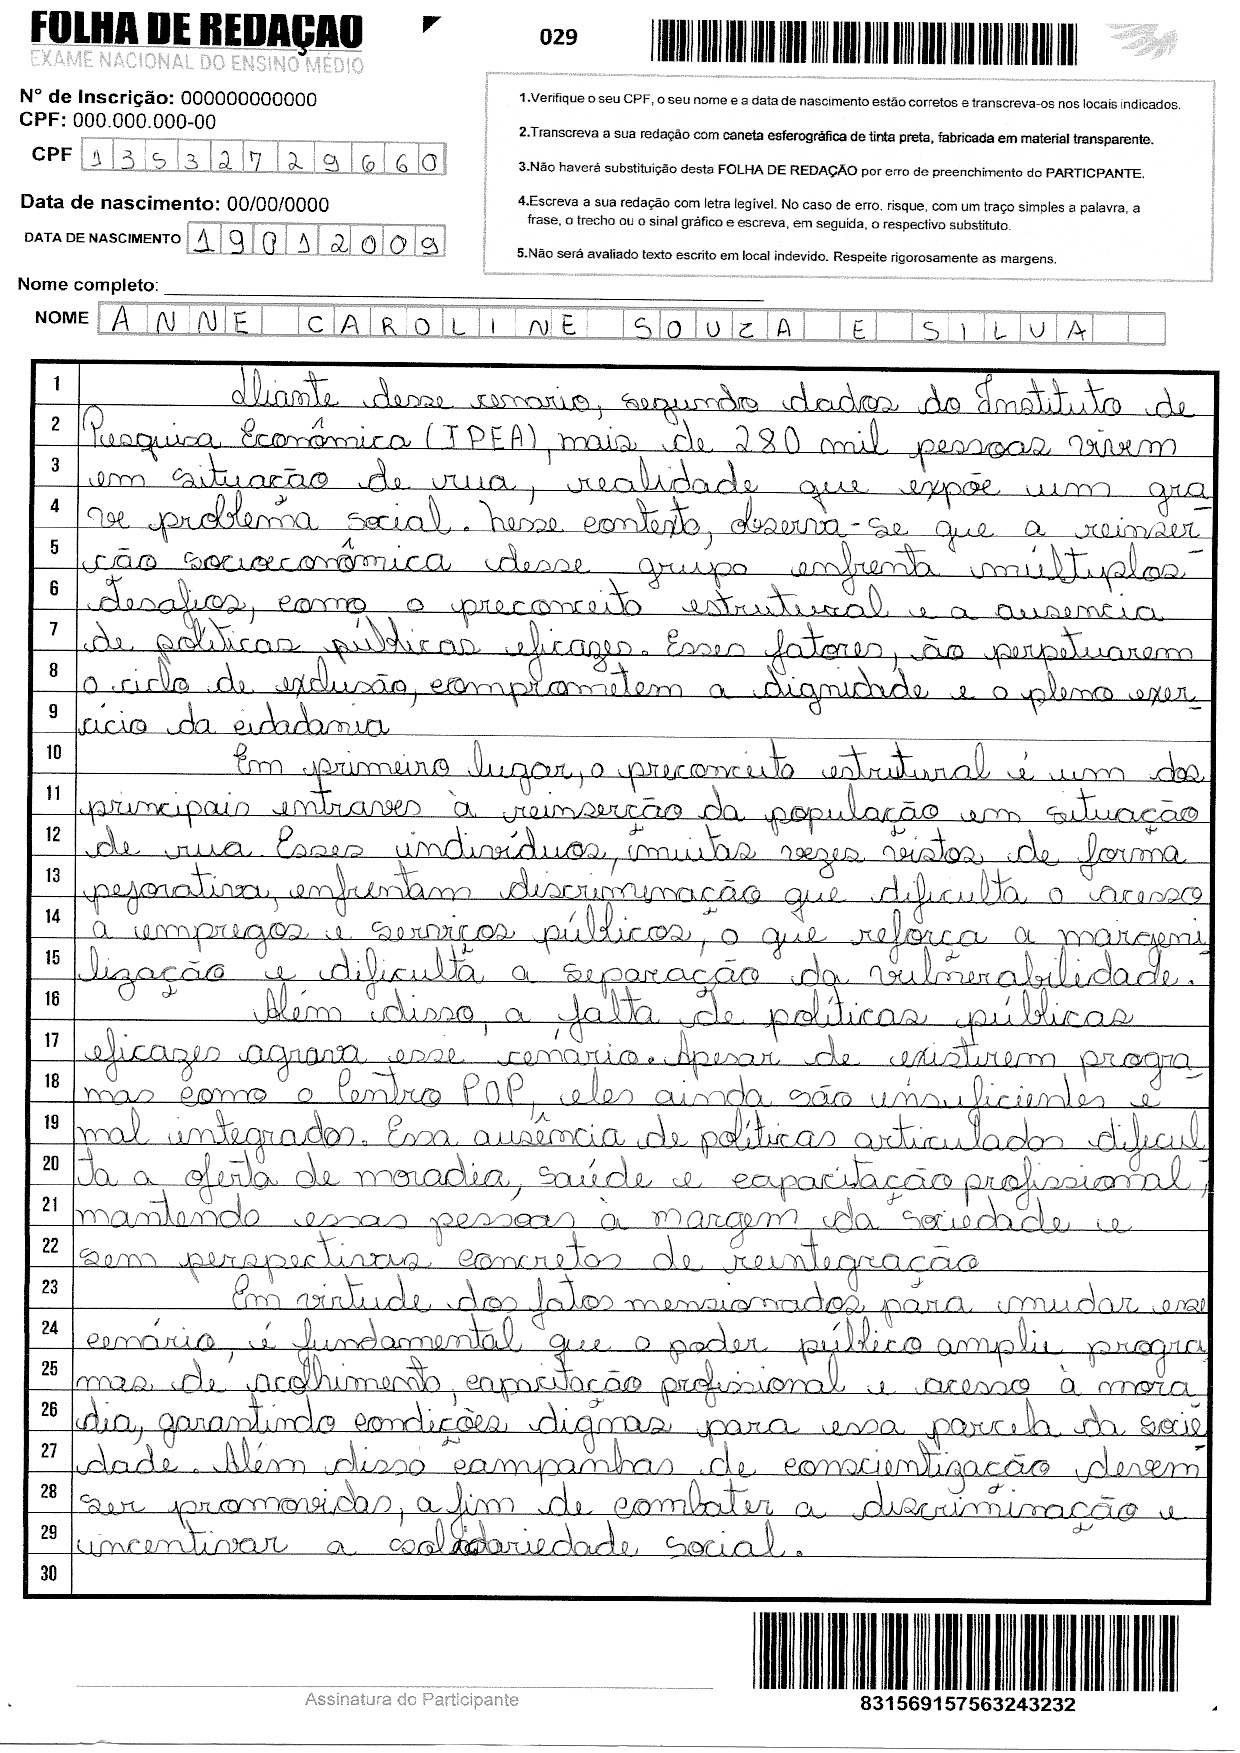 FOLHA DE REDAÇÃO
EXAME NACIONAL DO ENSINO MÉDIO
029
N° de Inscrição: 000000000000
CPF: 000.000.000-00
CPF 13532729660
Data de nascimento: 00/00/0000
DATA DE NASCIMENTO 19012009
1.Verifique o seu CPF, o seu nome e a data de nascimento estão corretos e transcreva-os nos locais indicados.
2.Transcreva a sua redação com caneta esferográfica de tinta preta, fabricada em material transparente.
3.Não haverá substituição desta FOLHA DE REDAÇÃO por erro de preenchimento do PARTICPANTE.
4.Escreva a sua redação com letra legível. No caso de erro. risque, com um traço simples a palavra, a
frase, o trecho ou o sinal gráfico e escreva, em seguida, o respectivo substituto.
5.Não será avaliado texto escrito em local indevido. Respeite rigorosamente as margens.
Nome completo:
NOME ANNE CAROLINE SOUZA E SILVA
1 Diante desse cenario, segundo dados do Instituto de
2 Pesquisa Econômica (IPEA), mais de 280 mil pessoas vivem
3 em situação de rua, realidade que expõe um gra
4 ve problema social. Nesse contexto, observa-se que a reinser
5 ção socioeconômica desse grupo enfrenta múltyplos
6 desafios, como o preconceito estrutural e a ausencia
7 de políticas públicas eficazes. Esses fatores, ão perpetuarem
8 o ciclo de exclusão, comprometem a dignidade e o pleno exer-
9 cício da cidadania
10 Em primeiro lugar, o preconceito estrutural é um dos
11 principais entraves à reinserção da população em situação
12 de rua. Esses indivíduos, muitas vezes vistos de forma
13 pejorativa, enfrentam discriminação que dificulta o acesso
14 a empregos e serviços públicos, o que reforça a margeni
15 lização e dificulta a separação da vulnerabilidade.
16 Além disso, a falta de políticas públicas
17 eficazes agrava esse cenário. Apesar de existirem progra
18 mas como o Centro POP, eles ainda são insuficientes e
19 mal integrados. Essa ausência de políticas articulados dificul
20 ta a oferta de moradia, saúde e capacitação profissional,
21 mantendo essas pessoas à margem da sociedade e
22 sem perspectivas concretos de reintegração
23 Em virtude dos fatos mensionados para mudar esse
24 cenário, é fundamental que o poder público amplie progra
25 mas de acolhimento, capacitação profissional e acesso à mora
26 dia, garantindo condições dignas para essa parcela da socie
27 dade. Além disso campanhas de conscientização devem
28 ser promovidas, a fim de combater a discriminação e
29 incentivar a solidariedade social.
30
Assinatura do Participante
831569157563243232